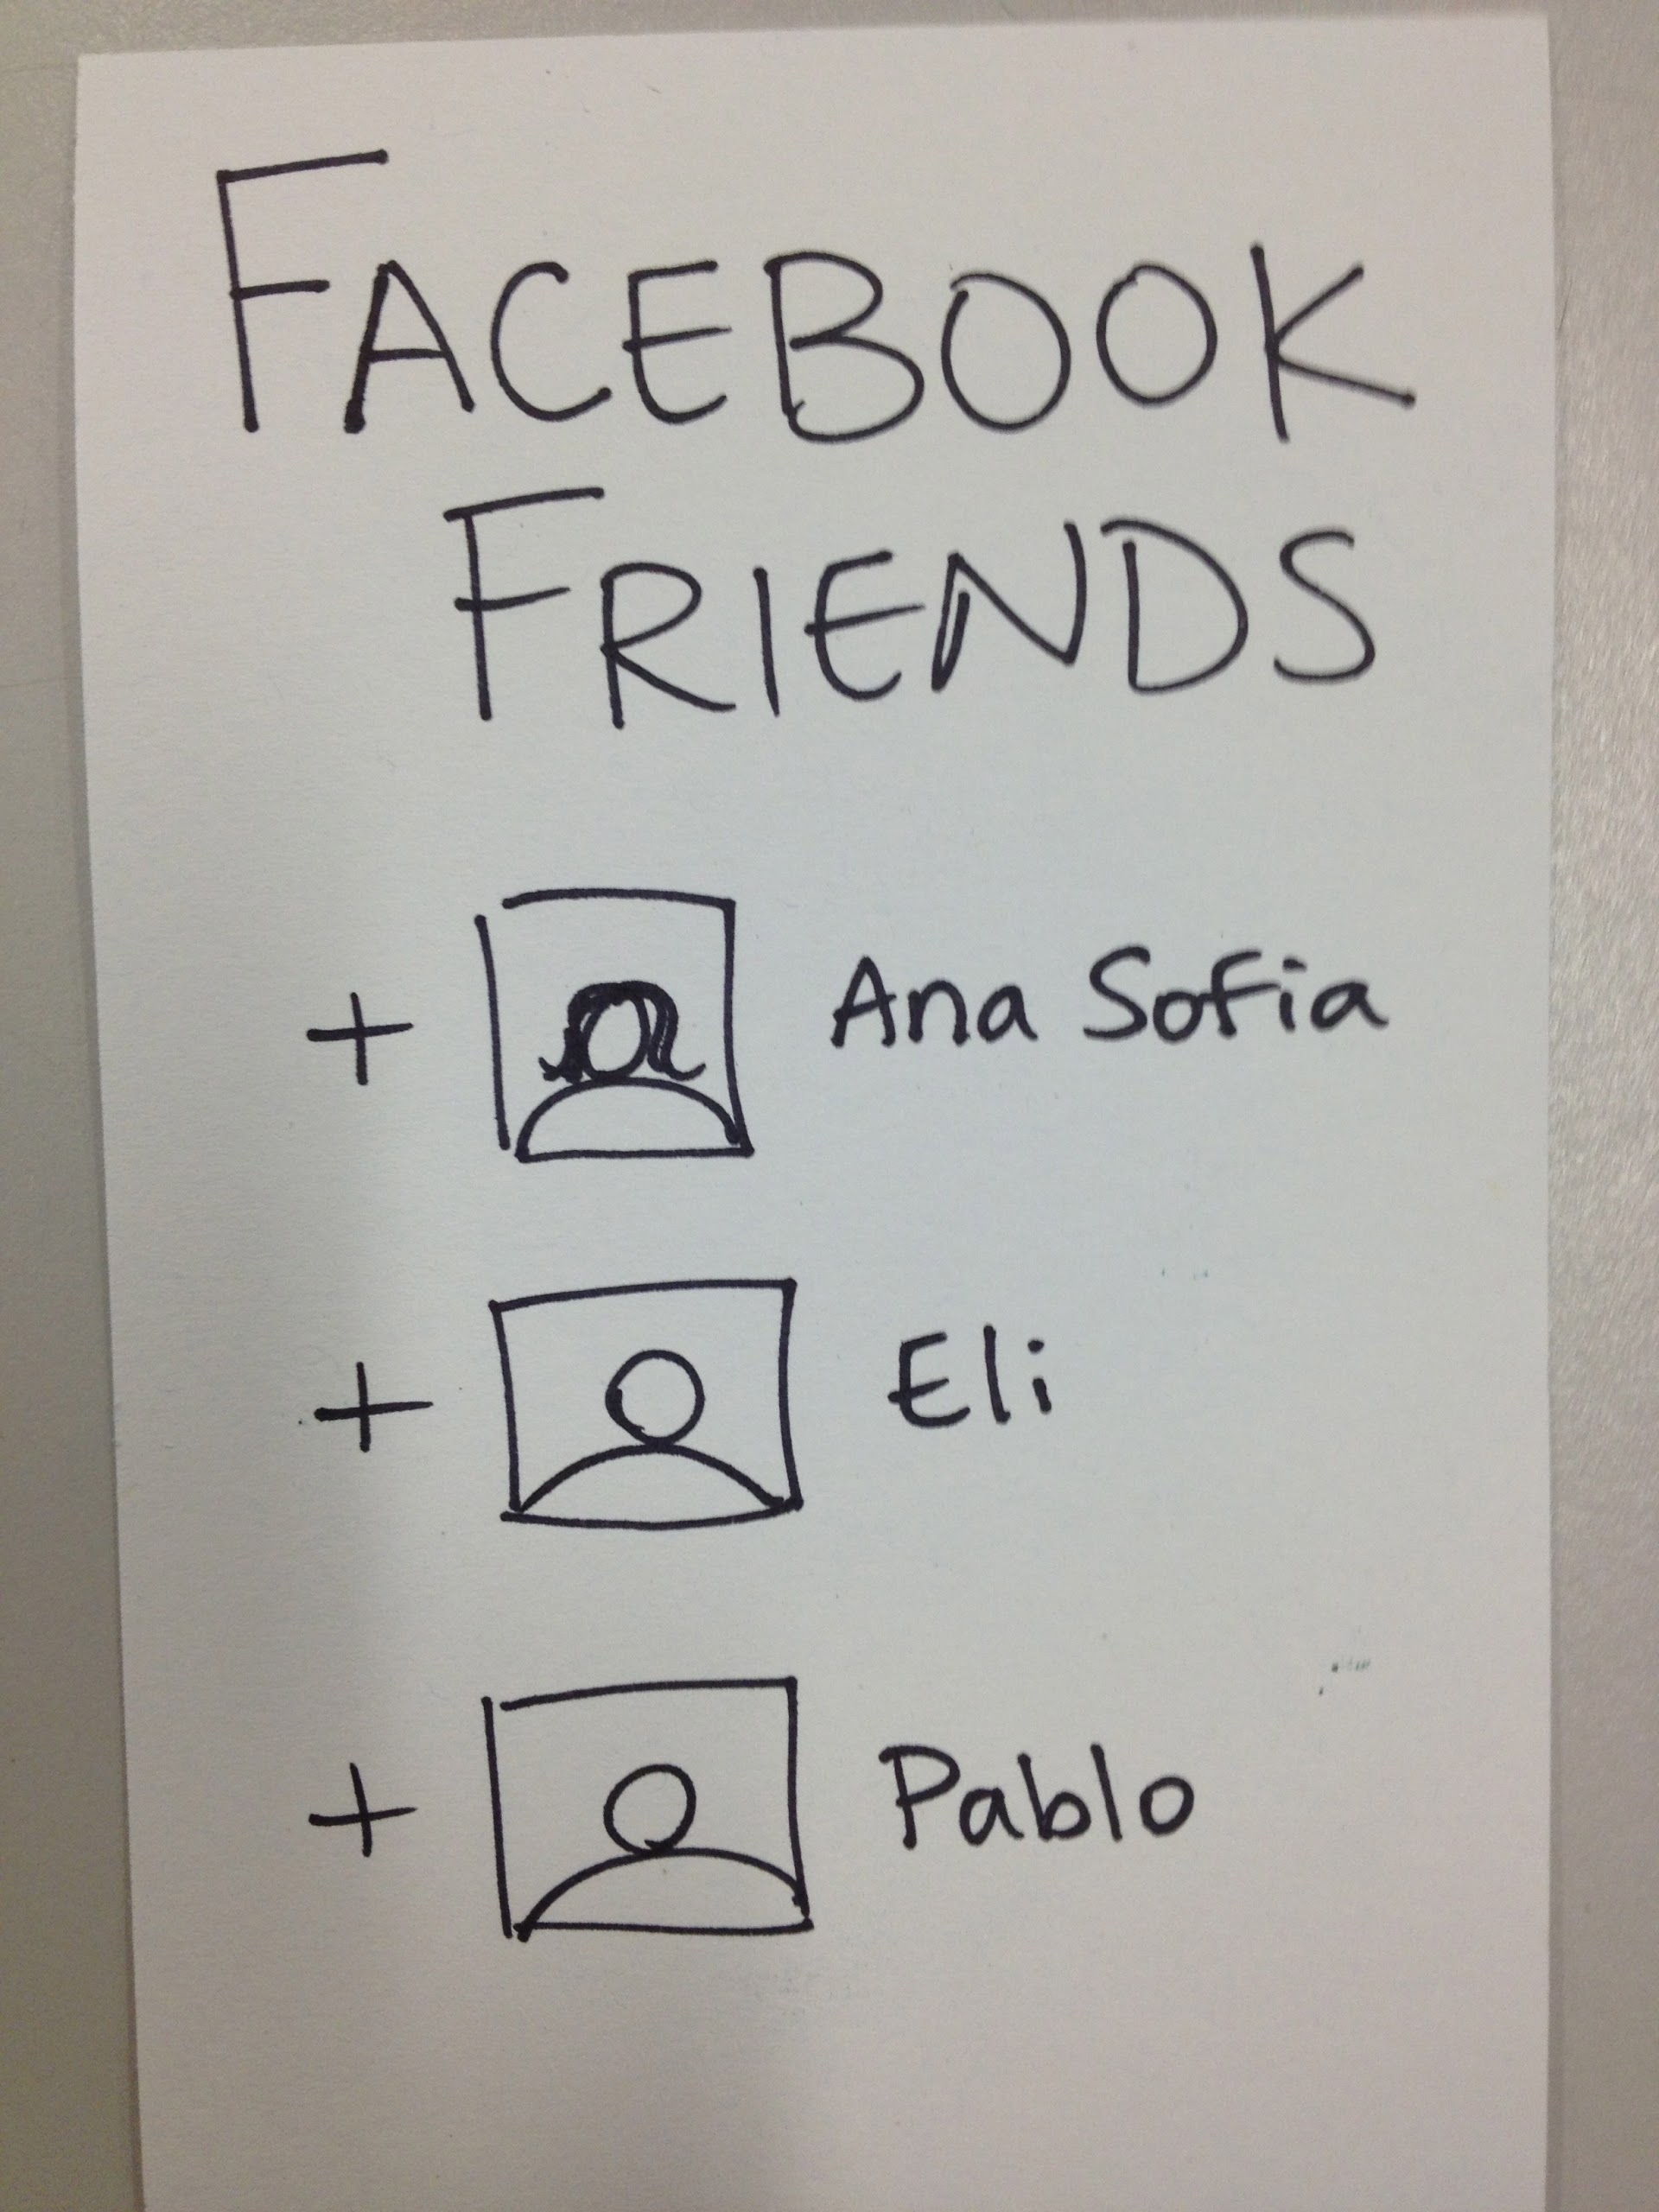 FACEBOOK
FRIENDS
+ Ana Sofia
+ Eli
+ Pablo